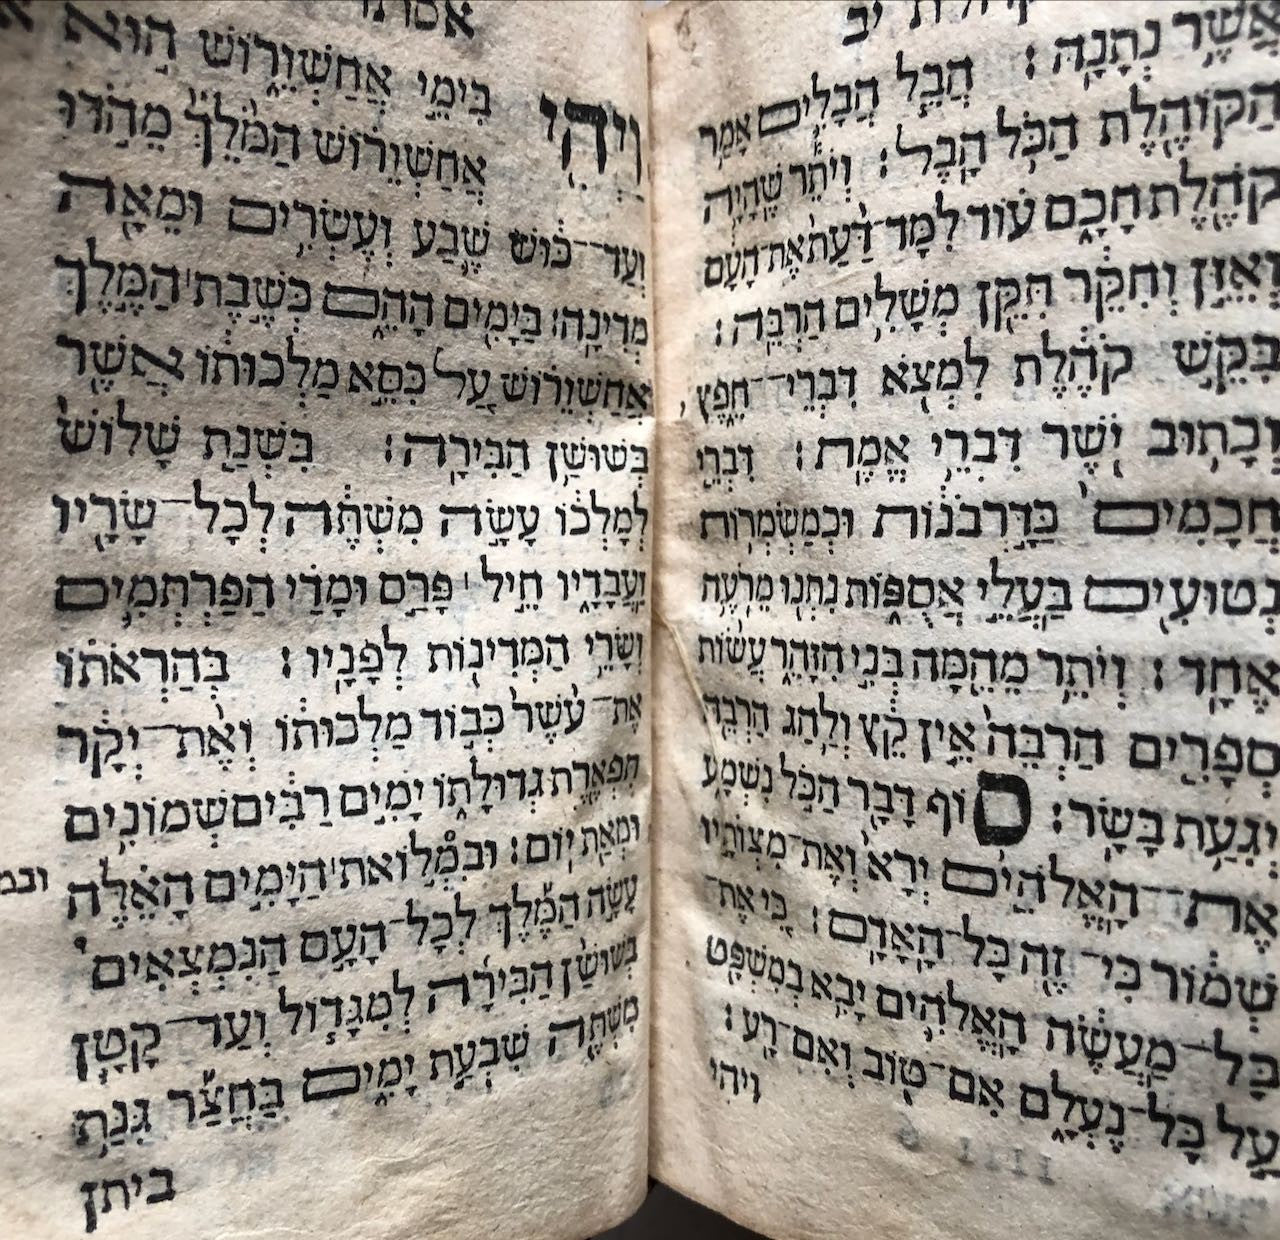 קהלת יב
אֲשֶׁר נְתָנָהּ׃ הֲבֵל הֲבָלִים אָמַר
הַקּוֹהֶלֶת הַכֹּל הָבֶל׃ וְיֹתֵר שֶׁהָיָה
קֹהֶלֶת חָכָם עוֹד לִמַּד־דַּעַת אֶת־הָעָם
וְאִזֵּן וְחִקֵּר תִּקֵּן מְשָׁלִים הַרְבֵּה׃
בִּקֵּשׁ קֹהֶלֶת לִמְצֹא דִּבְרֵי־חֵפֶץ
וְכָתוּב יֹשֶׁר דִּבְרֵי אֱמֶת׃ דִּבְרֵי
חֲכָמִים כַּדָּרְבֹנוֹת וּכְמַשְׂמְרוֹת
נְטוּעִים בַּעֲלֵי אֲסֻפּוֹת נִתְּנוּ מֵרֹעֶה
אֶחָד׃ וְיֹתֵר מֵהֵמָּה בְּנִי הִזָּהֵר עֲשׂוֹת
סְפָרִים הַרְבֵּה אֵין קֵץ וְלַהַג הַרְבֵּה
יְגִעַת בָּשָׂר׃ סוֹף דָּבָר הַכֹּל נִשְׁמָע
אֶת־הָאֱלֹהִים יְרָא וְאֶת־מִצְוֹתָיו
שְׁמוֹר כִּי־זֶה כָּל־הָאָדָם׃ כִּי אֶת־
כָּל־מַעֲשֶׂה הָאֱלֹהִים יָבִא בְמִשְׁפָּט
עַל כָּל־נֶעְלָם אִם־טוֹב וְאִם־רָע׃
ויהי
אסתר
וַיְהִי בִּימֵי אֲחַשְׁוֵרוֹשׁ הוּא
אֲחַשְׁוֵרוֹשׁ הַמֹּלֵךְ מֵהֹדּוּ
וְעַד־כּוּשׁ שֶׁבַע וְעֶשְׂרִים וּמֵאָה
מְדִינָה׃ בַּיָּמִים הָהֵם כְּשֶׁבֶת הַמֶּלֶךְ
אֲחַשְׁוֵרוֹשׁ עַל כִּסֵּא מַלְכוּתוֹ אֲשֶׁר
בְּשׁוּשַׁן הַבִּירָה׃ בִּשְׁנַת שָׁלוֹשׁ
לְמָלְכוֹ עָשָׂה מִשְׁתֶּה לְכָל־שָׂרָיו
וַעֲבָדָיו חֵיל פָּרַס וּמָדַי הַפַּרְתְּמִים
וְשָׂרֵי הַמְּדִינוֹת לְפָנָיו׃ בְּהַרְאֹתוֹ
אֶת־עֹשֶׁר כְּבוֹד מַלְכוּתוֹ וְאֶת־יְקָר
תִּפְאֶרֶת גְּדוּלָּתוֹ יָמִים רַבִּים שְׁמוֹנִים
וּמְאַת יוֹם׃ וּבִמְלוֹאת הַיָּמִים הָאֵלֶּה
עָשָׂה הַמֶּלֶךְ לְכָל־הָעָם הַנִּמְצְאִים
בְּשׁוּשַׁן הַבִּירָה לְמִגָּדוֹל וְעַד־קָטָן
מִשְׁתֶּה שִׁבְעַת יָמִים בַּחֲצַר גִּנַּת
ביתן